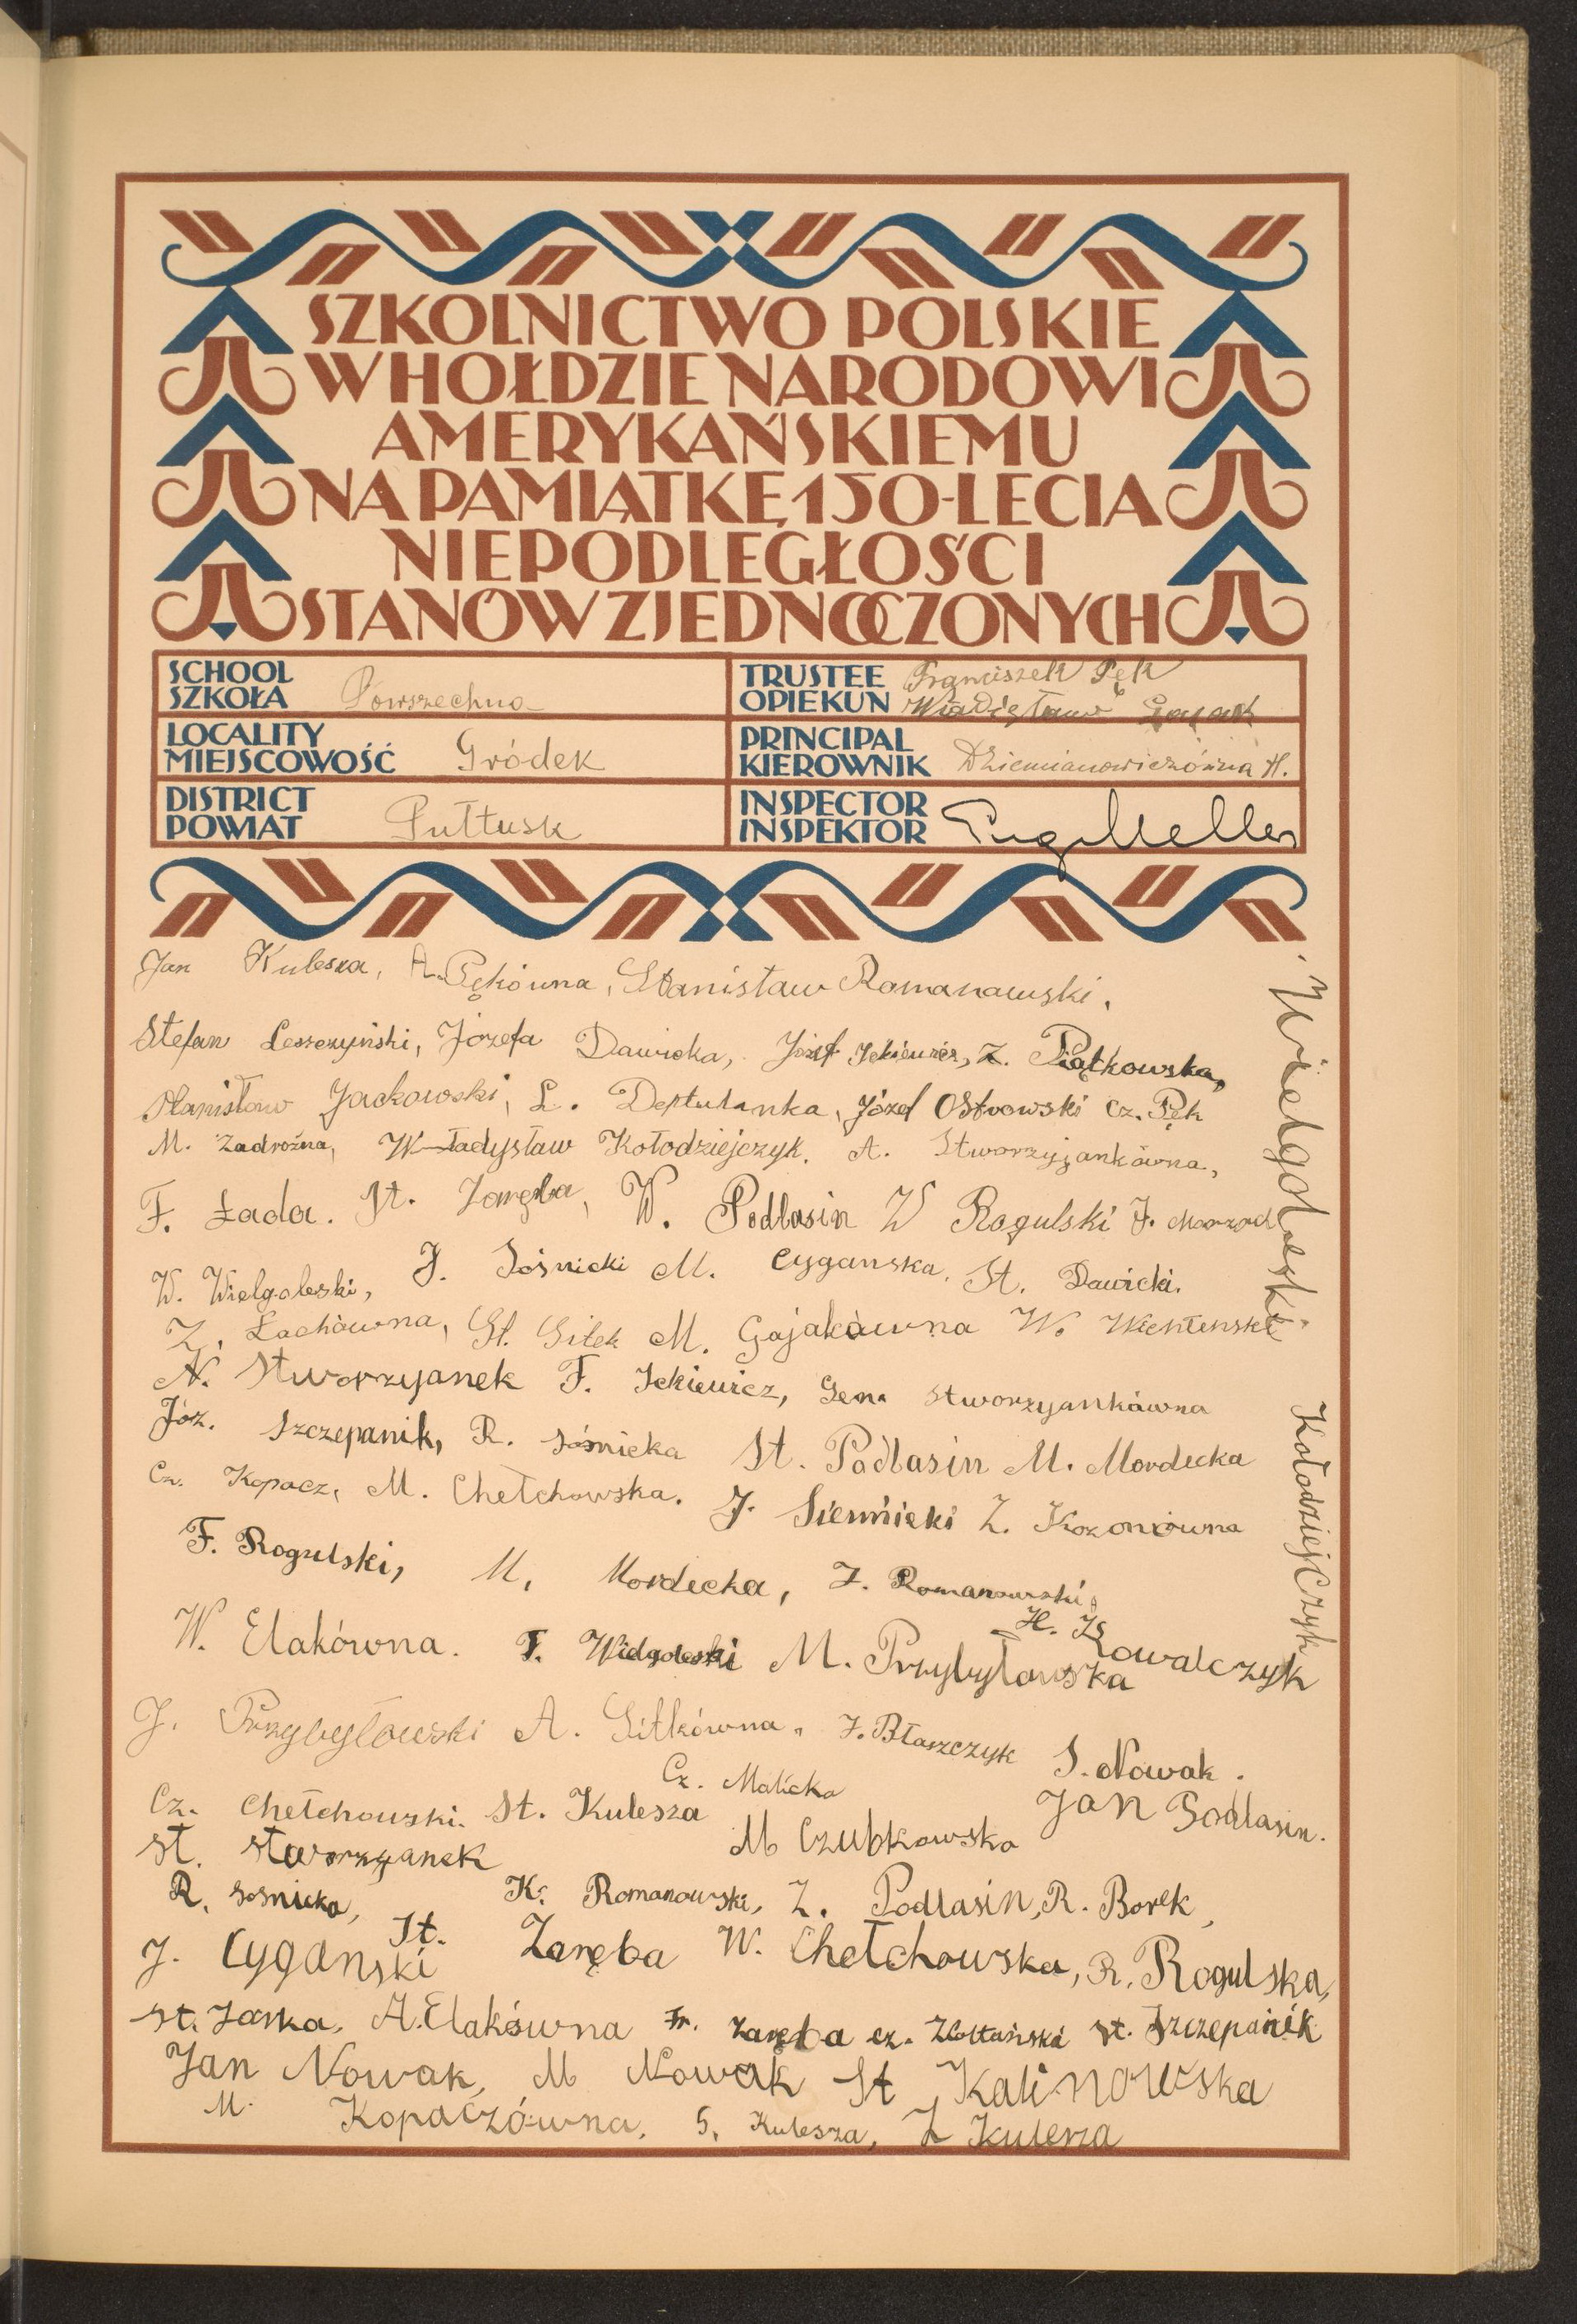 SZKOLNICTWO POLSKIE
W HOŁDZIE NARODOWI
AMERYKAŃSKIEMU
NA PAMIĄTKĘ 150-LECIA
NIEPODLEGŁOŚCI
STANÓW ZJEDNOCZONYCH
SCHOOL
SZKOŁA Powszechna
TRUSTEE Franciszek Pęk
OPIEKUN Władysław
LOCALITY
MIEJSCOWOŚĆ Gródek
PRINCIPAL
KIEROWNIK Dziemianowiczówna H.
DISTRICT
POWIAT Pułtusk
INSPECTOR
INSPEKTOR
Jan Kulesza, A. Pękówna, Stanisław Romanowski,
Stefan Leszczyński, Józefa Dawicka, Józef Ickiewicz, Z. Piątkowska,
Stanisław Jackowski, L. Deptulanka, Józef Ostrowski Cz. Pęk
M. Zadrożna, Władysław Kołodziejczyk. A. Stworzyjankówna,
F. Łada. St. Zaręba, W. Podlasin W Rogulski J.
W. Wielgoleski, J. Sośnicki M. Cyganska, St. Dawicki.
Z. Lachówna, St. Sitek M. Gajakówna W.
N. Stworzyjanek F. Ickiewicz, Gen. Stworzyankówna
Józ. Szczepanik, R. Sośnicka St. Podlasin M. Mordecka
Cz. Kopacz, M. Chełchowska. J. Siennicki Z. Kozonówna
F. Rogulski, M. Mordecka, J. Romanowski,
H. Kowalczyk
W. Elakówna. F. Wielgoleski M. Przybyłowska
J. Przybyłowski A. Sitkówna, J. Błaszczyk S. Nowak.
Cz. Malicka
Cz. Chełchowski. St. Kulesza Jan Podlasin.
St. Stworzyjanek M Czubkowska
R. Sośnicka, K. Romanowski, Z. Podlasin, R. Borek,
J. Cyganski St. Zaręba W. Chełchowska, R. Rogulska,
St. Jaska, A. Elakówna Fr. Zaręba cz. St. Szczepanik
Jan Nowak, M Nowak St Kalinowska
M. Kopaczówna, S. Kulesza, Z Kulesza
Wielgoleski
Kołodziejczyk